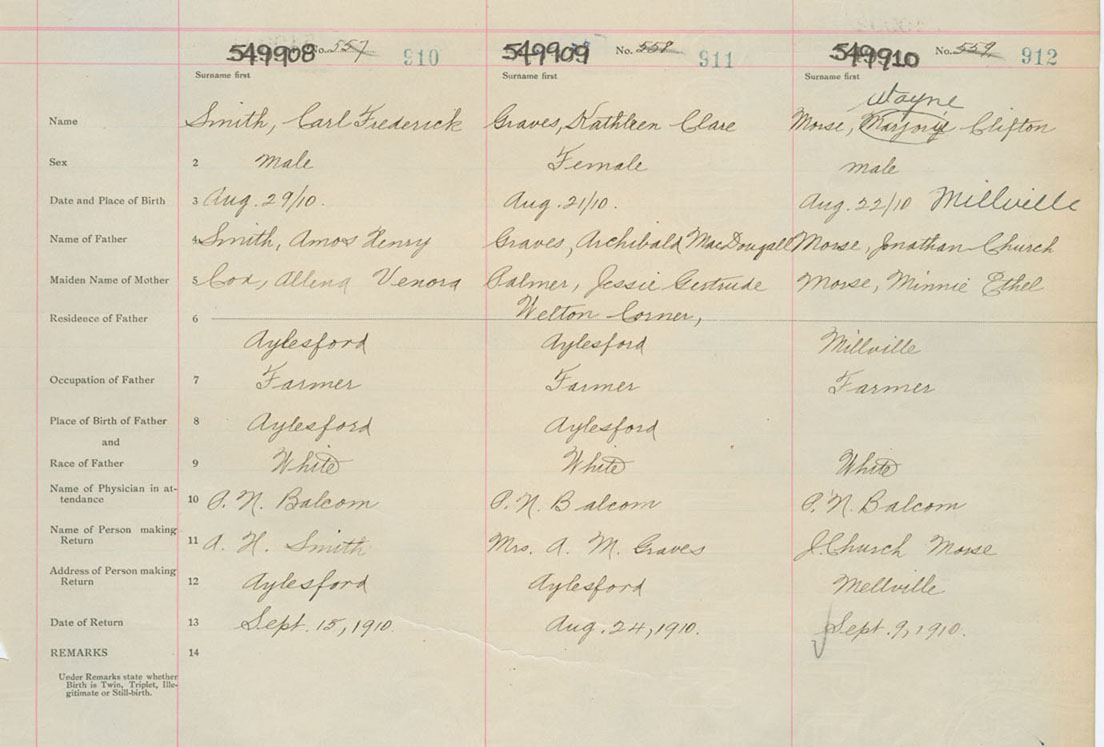 549908 No. 557 910 549909 No. 558 911 549910 No. 559 912
Surname first Surname first Surname first
Wayne
Name Smith, Carl Frederick Graves, Kathleen Clare Morse, Marjorie Clifton
Sex 2 Male Female male
Date and Place of Birth 3 Aug. 29/10. Aug. 21/10. Aug. 22/10 Millville
Name of Father 4 Smith, Amos Henry Graves, Archibald MacDougall Morse, Jonathan Church
Maiden Name of Mother 5 Cox, Allena Venora Palmer, Jessie Gertrude Morse, Minnie Ethel
Residence of Father 6 Welton Corner,
Aylesford Aylesford Millville
Occupation of Father 7 Farmer Farmer Farmer
Place of Birth of Father 8 Aylesford Aylesford
and
Race of Father 9 White White White
Name of Physician in at-
tendance 10 P. N. Balcom P. N. Balcom P. N. Balcom
Name of Person making
Return 11 A. H. Smith Mrs. A. M. Graves J. Church Morse
Address of Person making
Return 12 Aylesford Aylesford Mellville
Date of Return 13 Sept. 15, 1910. Aug. 24, 1910. Sept. 9, 1910.
REMARKS 14
Under Remarks state whether
Birth is Twin, Triplet, Ille-
gitimate or Still-birth.